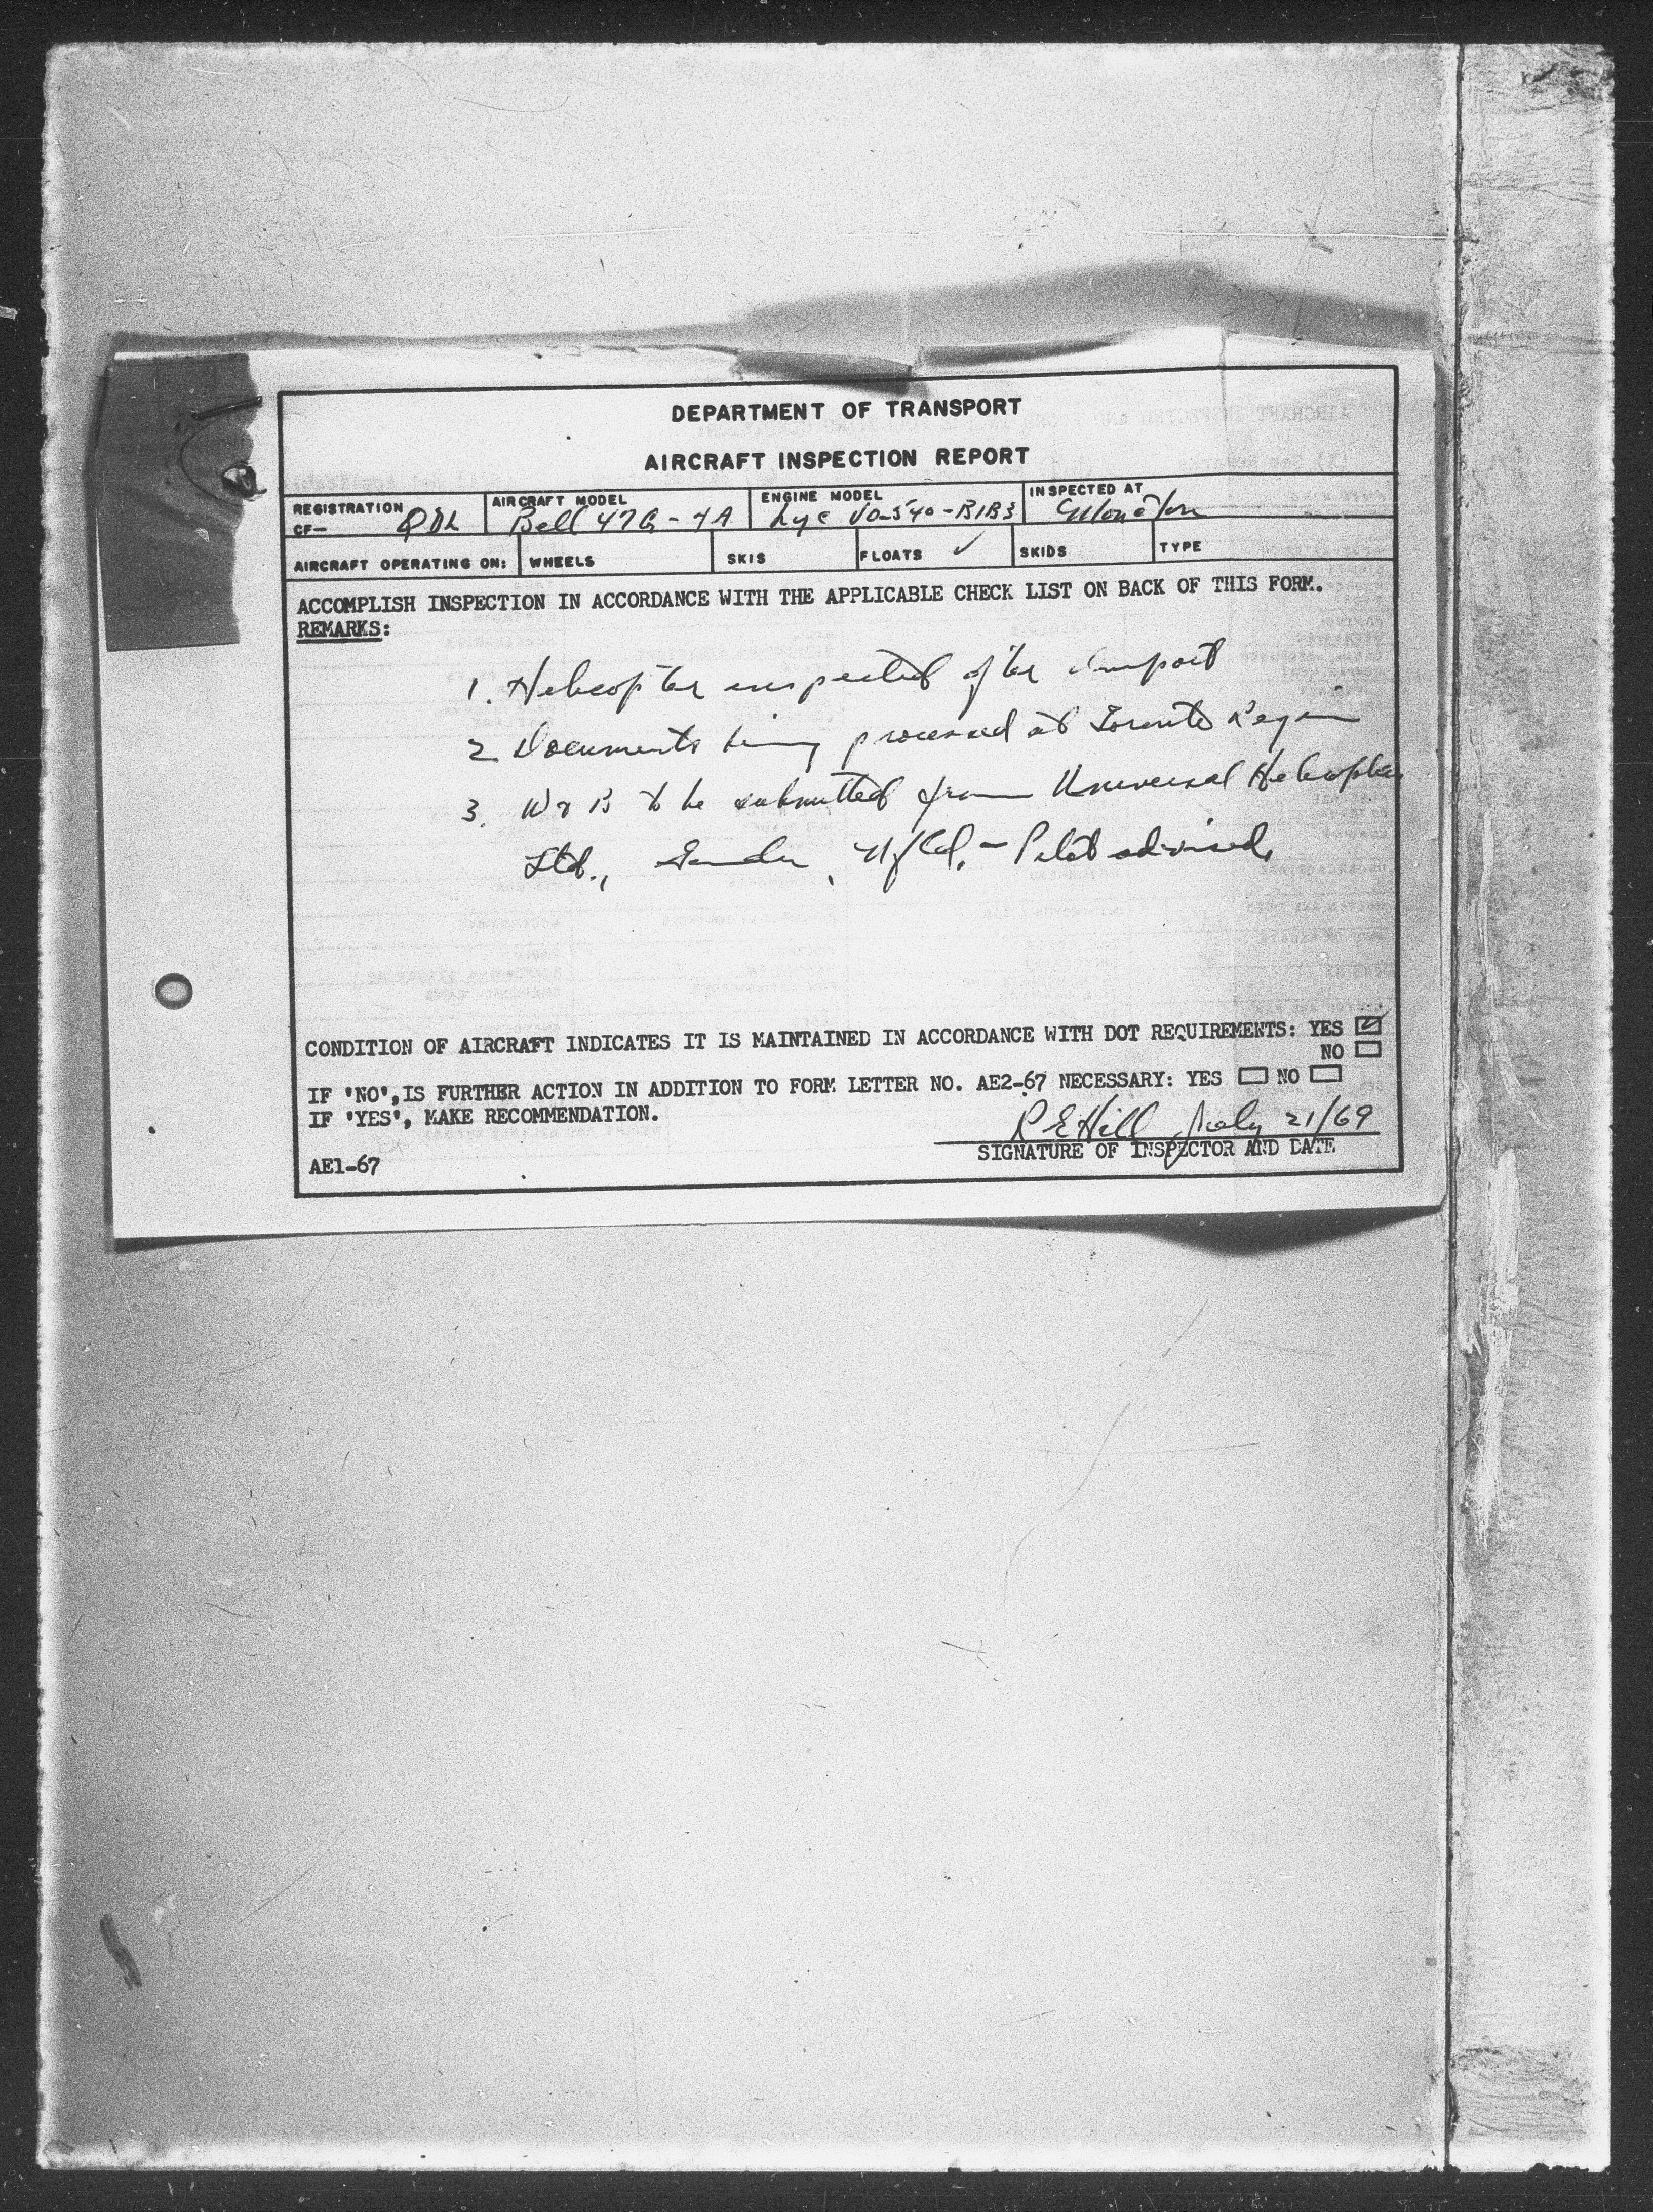 DEPARTMENT OF TRANSPORT
AIRCRAFT INSPECTION REPORT
REGISTRATION CF- QDL AIRCRAFT MODEL Bell 47G-4A ENGINE MODEL Lyc VO-540-B1B3 INSPECTED AT Moncton
AIRCRAFT OPERATING ON: WHEELS SKIS FLOATS ✓ SKIDS TYPE
ACCOMPLISH INSPECTION IN ACCORDANCE WITH THE APPLICABLE CHECK LIST ON BACK OF THIS FORM.
REMARKS:
1. Helicopter inspected after import
2 Documents being processed at Toronto Region
3. W & B to be submitted from Universal Helicopters
Ltd., Gander, Nfld. - Pilot advised.
CONDITION OF AIRCRAFT INDICATES IT IS MAINTAINED IN ACCORDANCE WITH DOT REQUIREMENTS: YES ☑
NO ☐
IF 'NO', IS FURTHER ACTION IN ADDITION TO FORM LETTER NO. AE2-67 NECESSARY: YES ☐ NO ☐
IF 'YES', MAKE RECOMMENDATION.
R E Hill July 21/69
SIGNATURE OF INSPECTOR AND DATE
AE1-67